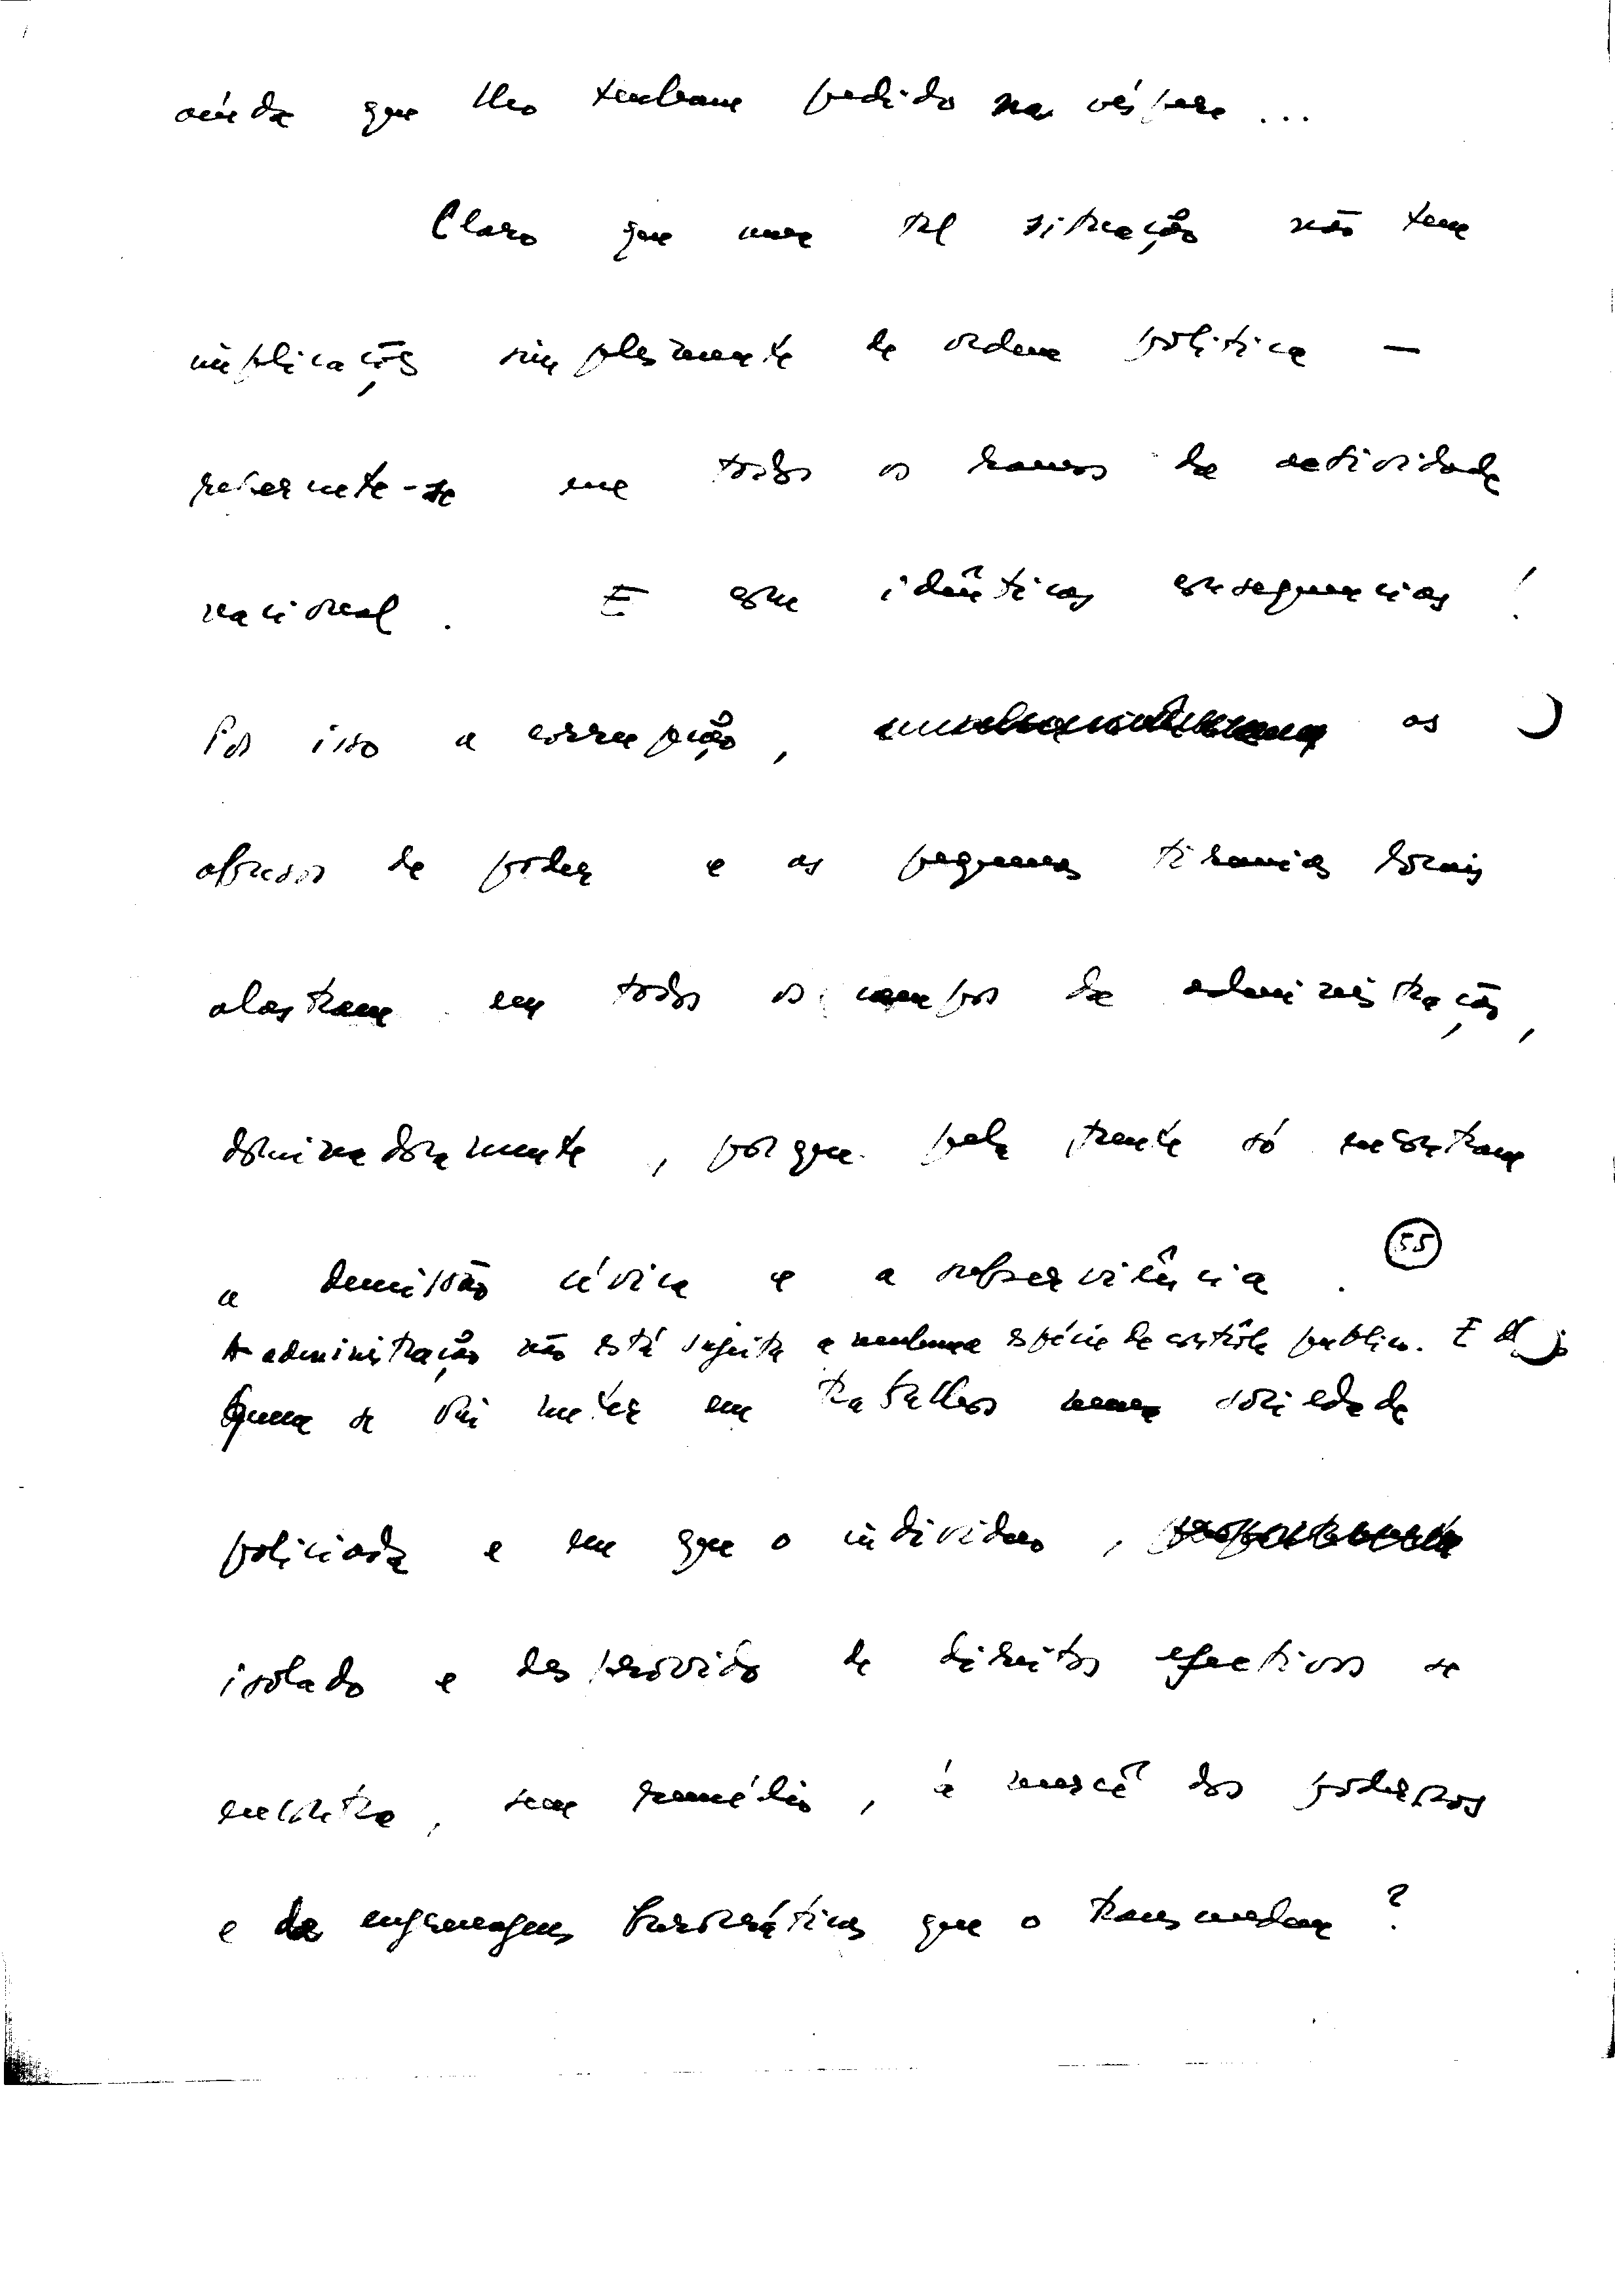 ainda que lho tenham pedido na véspera ...
Claro que uma tal situação não tem
implicações simplesmente de ordem política —
repercute-se em todos os ramos da actividade
nacional. E com idênticas consequencias!
Por isso a corrupção, os
abusos de poder e as pequenas tiranias locais
alastram em todos os campos da administração,
dominadoramente, porque pela frente só encontram
a demissão cívica e a subserviência. (55)
A administração não está sujeita a nenhuma espécie de contrôle publico. E
quem se vai meter em trabalhos numa sociedade
policiada e em que o indivíduo,
isolado e desprovido de direitos efectivos se
encontra, sem remédio, à mercê dos poderosos
e da engrenagens burocráticas que o transcendem?